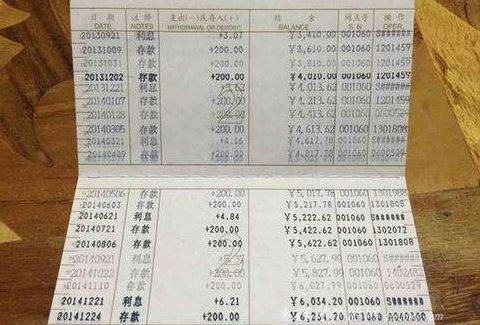 日 期 注 释 支出(-)或存入(+) 结 余 网点号 操 作
DATE NOTES WITHDRAWAL OR DEPOSIT BALANCE S.N. OPER.
20130921 利息 +3.07 ¥3,410.00 001060 S######
20131009 存款 +200.00 ¥3,610.00 001060 1201459
20131031 存款 +200.00 ¥3,810.00 001060
20131202 存款 +200.00 ¥4,010.00 001060 1201459
20131221 利息 +3.62 ¥4,013.62 001060 S######
20140107 存款 +200.00 ¥4,213.62 001060 1201459
20140128 存款 +200.00 ¥4,413.62 001060
20140305 存款 +200.00 ¥4,613.62 001060 1301808
20140321 利息 +4.16 ¥4,617.78 001060 S######
20140409 存款 +200.00 ¥4,817.78 001060 0600529
20140506 存款 +200.00 ¥5,017.78 001060 1301988
20140603 存款 +200.00 ¥5,217.78 001060
20140621 利息 +4.84 ¥5,222.62 001060 S######
20140721 存款 +200.00 ¥5,422.62 001060 1302072
20140806 存款 +200.00 ¥5,622.62 001060 1301808
20140921 利息 +5.37 ¥5,627.99 001060 S######
20141022 存款 +200.00 ¥5,827.99 001060
20141110 存款 +200.00 ¥6,027.99 001060 0600529
20141221 利息 +6.21 ¥6,034.20 001060 S######
20141224 存款 +200.00 ¥6,234.20 001060 A040300